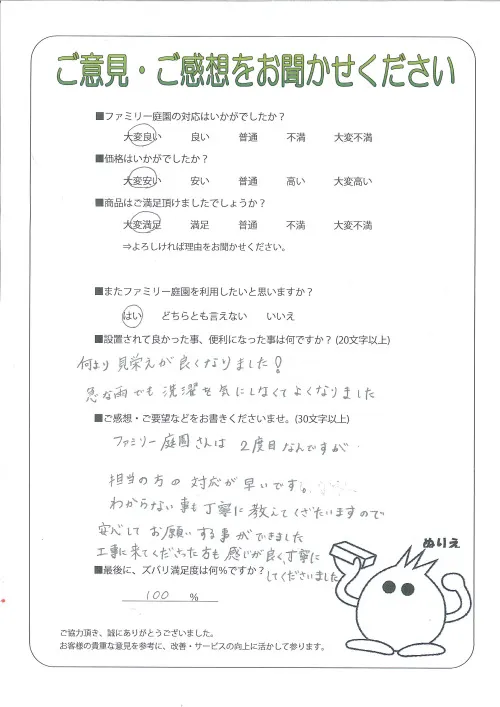 ご意見・ご感想をお聞かせください
■ファミリー庭園の対応はいかがでしたか？
大変良い 良い 普通 不満 大変不満
■価格はいかがでしたか？
大変安い 安い 普通 高い 大変高い
■商品はご満足頂けましたでしょうか？
大変満足 満足 普通 不満 大変不満
⇒よろしければ理由をお聞かせください。
■またファミリー庭園を利用したいと思いますか？
はい どちらとも言えない いいえ
■設置されて良かった事、便利になった事は何ですか？(20文字以上)
何より見栄えが良くなりました！
急な雨でも洗濯を気にしなくてよくなりました
■ご感想・ご要望などをお書きくださいませ。(30文字以上)
ファミリー庭園さんは2度目なんですが…
担当の方の対応が早いです。
わからない事も丁寧に教えてくださいますので
安心してお願いする事ができました
工事に来てくださった方も感じが良く丁寧に
してくださいました
■最後に、ズバリ満足度は何%ですか？
100 %
ぬりえ
ご協力頂き、誠にありがとうございました。
お客様の貴重な意見を参考に、改善・サービスの向上に活かして参ります。